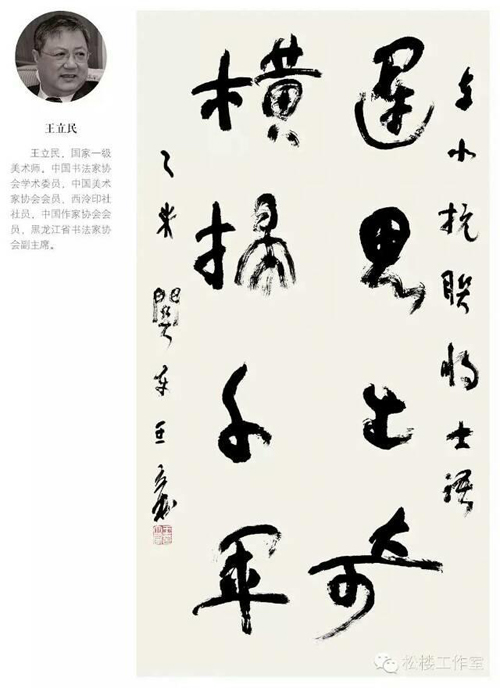 王立民
王立民,国家一级
美术师,中国书法家协
会学术委员,中国美术
家协会会员、西泠印社
社员,中国作家协会会
员、黑龙江省书法家协
会副主席。
抗联将士语
運思出奇
横掃千軍
乙未
王立民
松楼工作室